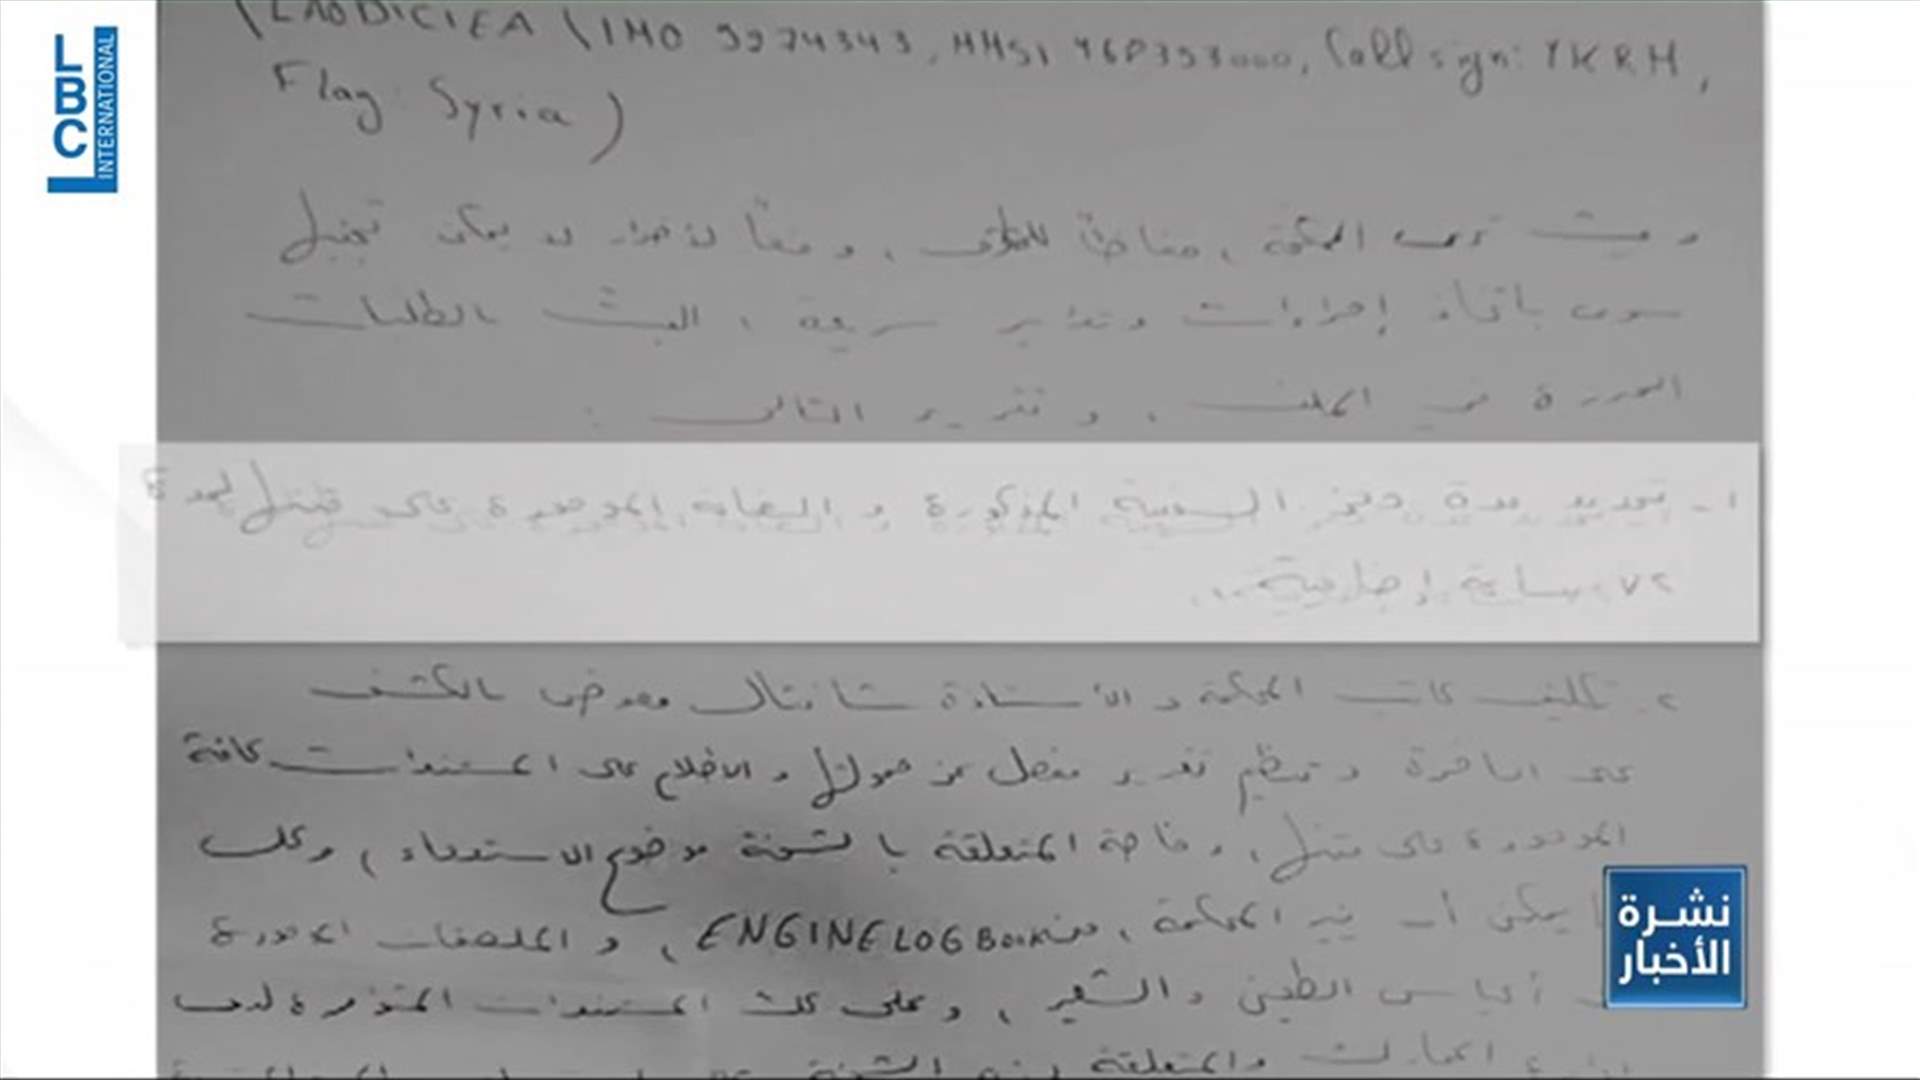 LBC
INTERNATIONAL
(LAODICIEA (IMO 9274343, MMSI 468353000, Call sign: YKRM,
Flag: Syria)
وحيث ترى المحكمة، مناطاً للملف، ومنعاً لأضرار لا يمكن تجنبها
سوى باتخاذ إجراءات وتدابير سريعة، البت بالطلبات
الواردة في الملف، وتقرير التالي:
١- تمديد مدة حجز السفينة المذكورة والبضاعة الموجودة على متنها لمدة
٧٢ ساعة إضافية.
٢- تكليف كاتب المحكمة والأستاذة شانتال معوض بالكشف
على الباخرة وتنظيم تقرير مفصل عن حمولتها والاطلاع على المستندات كافة
الموجودة على متنها، وخاصة المتعلقة بالشحنة موضوع الاستدعاء، وكل
ما يمكن أن ينير المحكمة، من ENGINE LOG Book، والملصقات الموجودة
على أكياس الطحين والشعير، وعلى كل المستندات المتوفرة لدى
نشرة
الأخبار